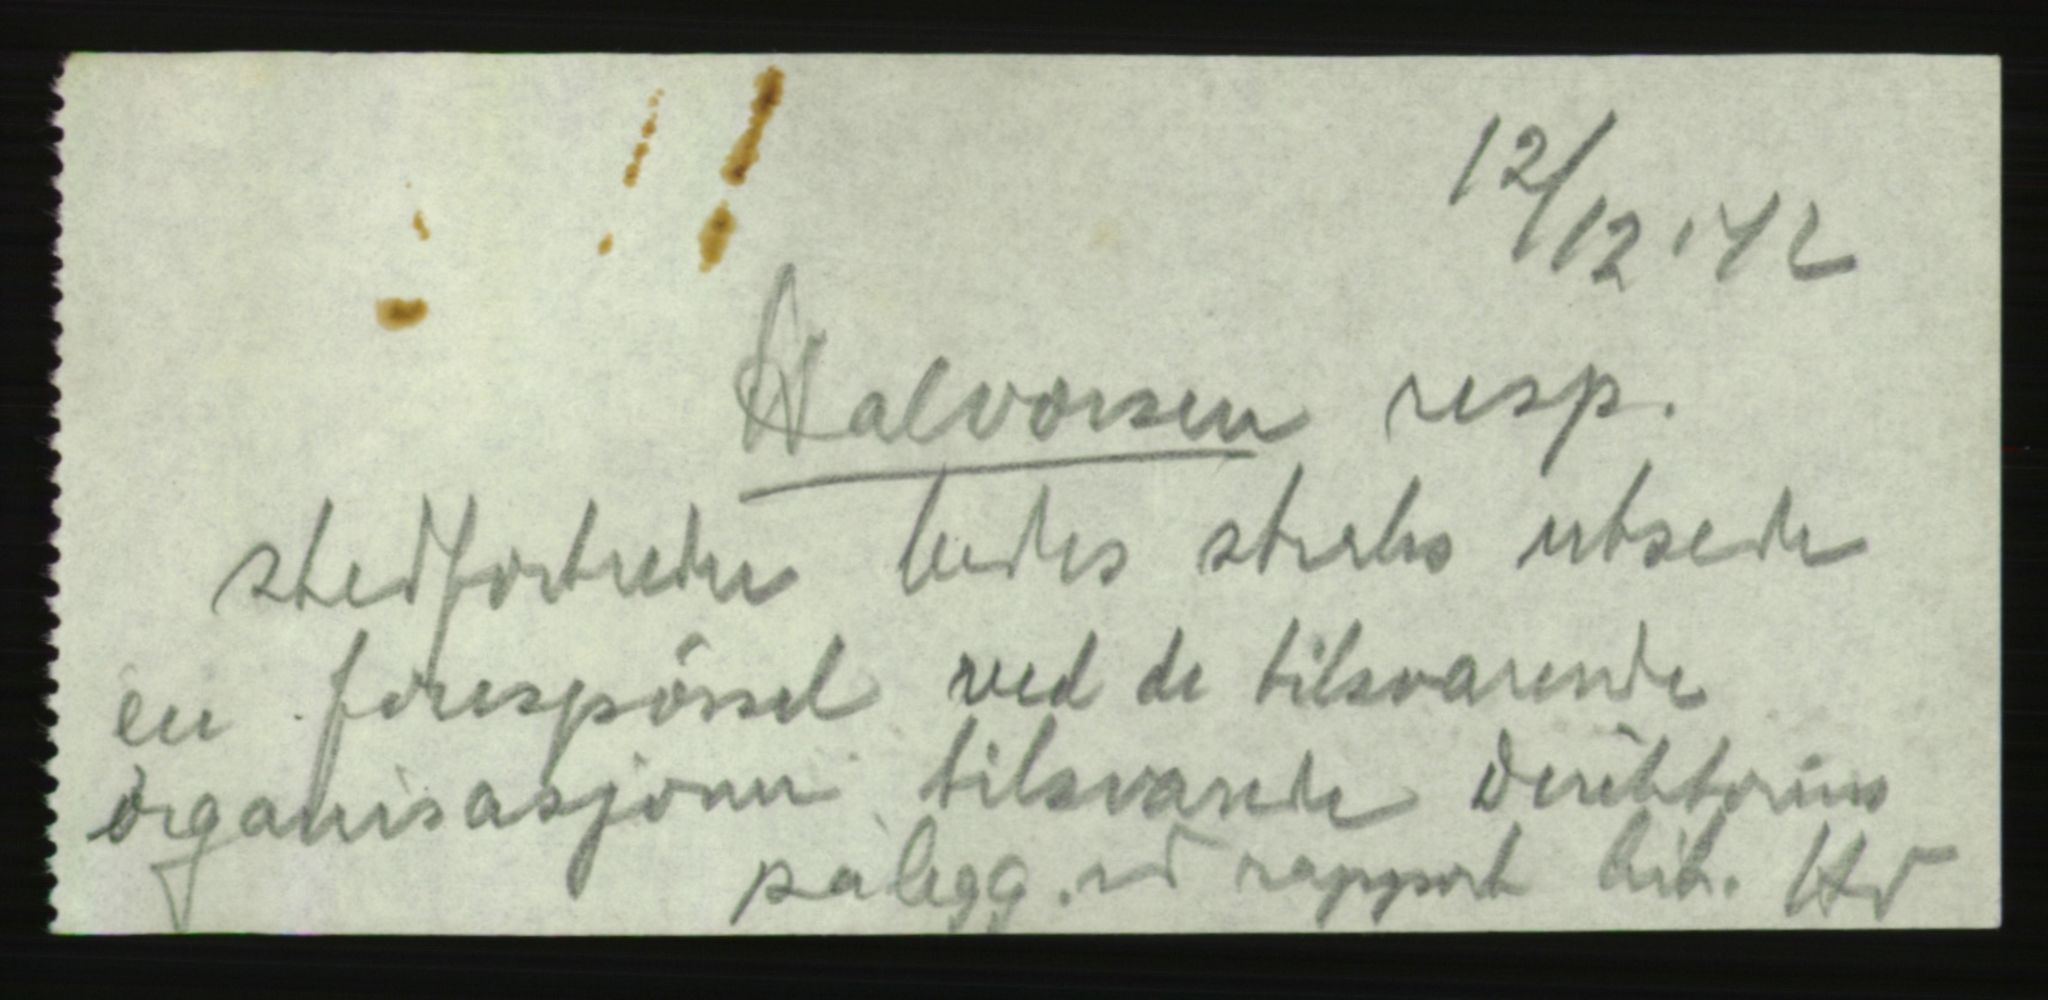 12/12.'42
Halvorsen resp.
stedfortreder bedes straks utsede
en forespørsel ved de tilsvarende
organisasjoner tilsvarende Direktorius
pålegg. rapport hit. HV